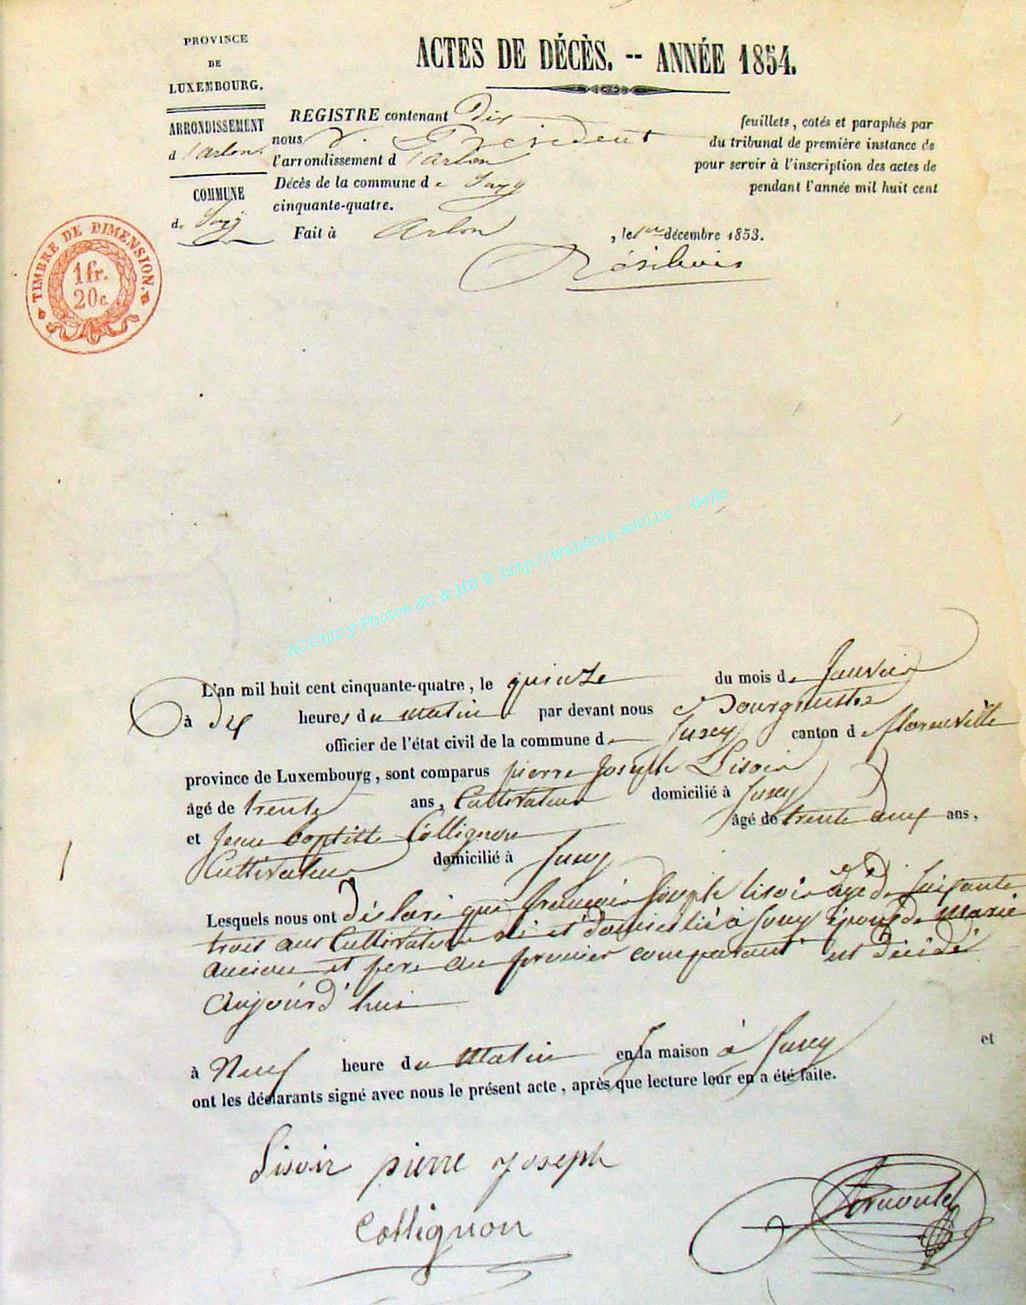 PROVINCE
DE
LUXEMBOURG.
ARRONDISSEMENT
d'arlon.
COMMUNE
de
ACTES DE DÉCÈS. -- ANNÉE 1854.
REGISTRE contenant Dix feuillets, cotés et paraphés par
nous Président du tribunal de première instance de
l'arrondissement d'arlon pour servir à l'inscription des actes de
Décès de la commune de pendant l'année mil huit cent
cinquante-quatre.
Fait à Arlon, le 1er décembre 1853.
TIMBRE DE DIMENSION.
1 fr.
20 c.
http://wallonia.asbl.be - Geflo
L'an mil huit cent cinquante-quatre, le quinze du mois de Janvier
à dix heures du matin par devant nous Bourgmestre
officier de l'état civil de la commune de canton de florenville
province de Luxembourg, sont comparus pierre Joseph Lisoir
âgé de trente ans, Cultivateur domicilié à
et Jean baptiste Collignon âgé de trente deux ans,
Cultivateur domicilié à
Lesquels nous ont déclaré que françois Joseph lisoir âgé de Soixante
trois ans Cultivateur né et domicilié à Epoux de marie
et pere au premier comparant est décédé
aujourd'hui
à Neuf heure du matin en sa maison à et
ont les déclarants signé avec nous le présent acte, après que lecture leur en a été faite.
Lisoir pierre joseph
Collignon